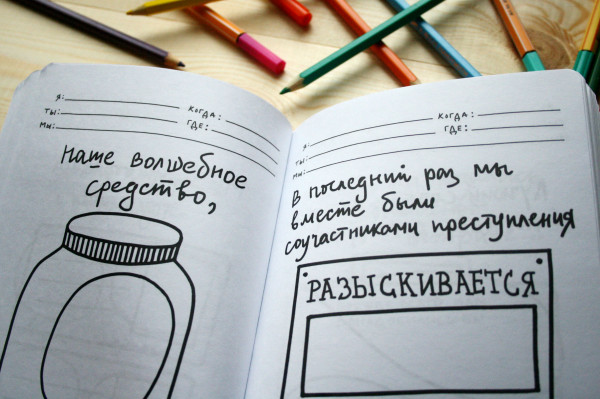 Я:
КОГДА:
ТЫ:
ГДЕ:
МЫ:
наше волшебное
средство,
Я:
КОГДА:
ТЫ:
ГДЕ:
МЫ:
В последний раз мы
вместе были
соучастниками преступления
РАЗЫСКИВАЕТСЯ